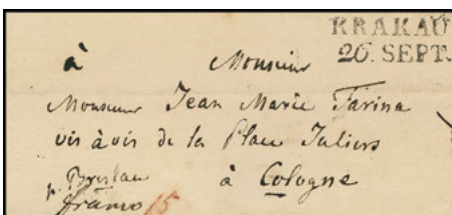 KRAKAU
26. SEPT.
à Monsieur
Monsieur Jean Marie Farina
vis à vis de la Place Juliers
p. Breslau à Cologne
franco 15